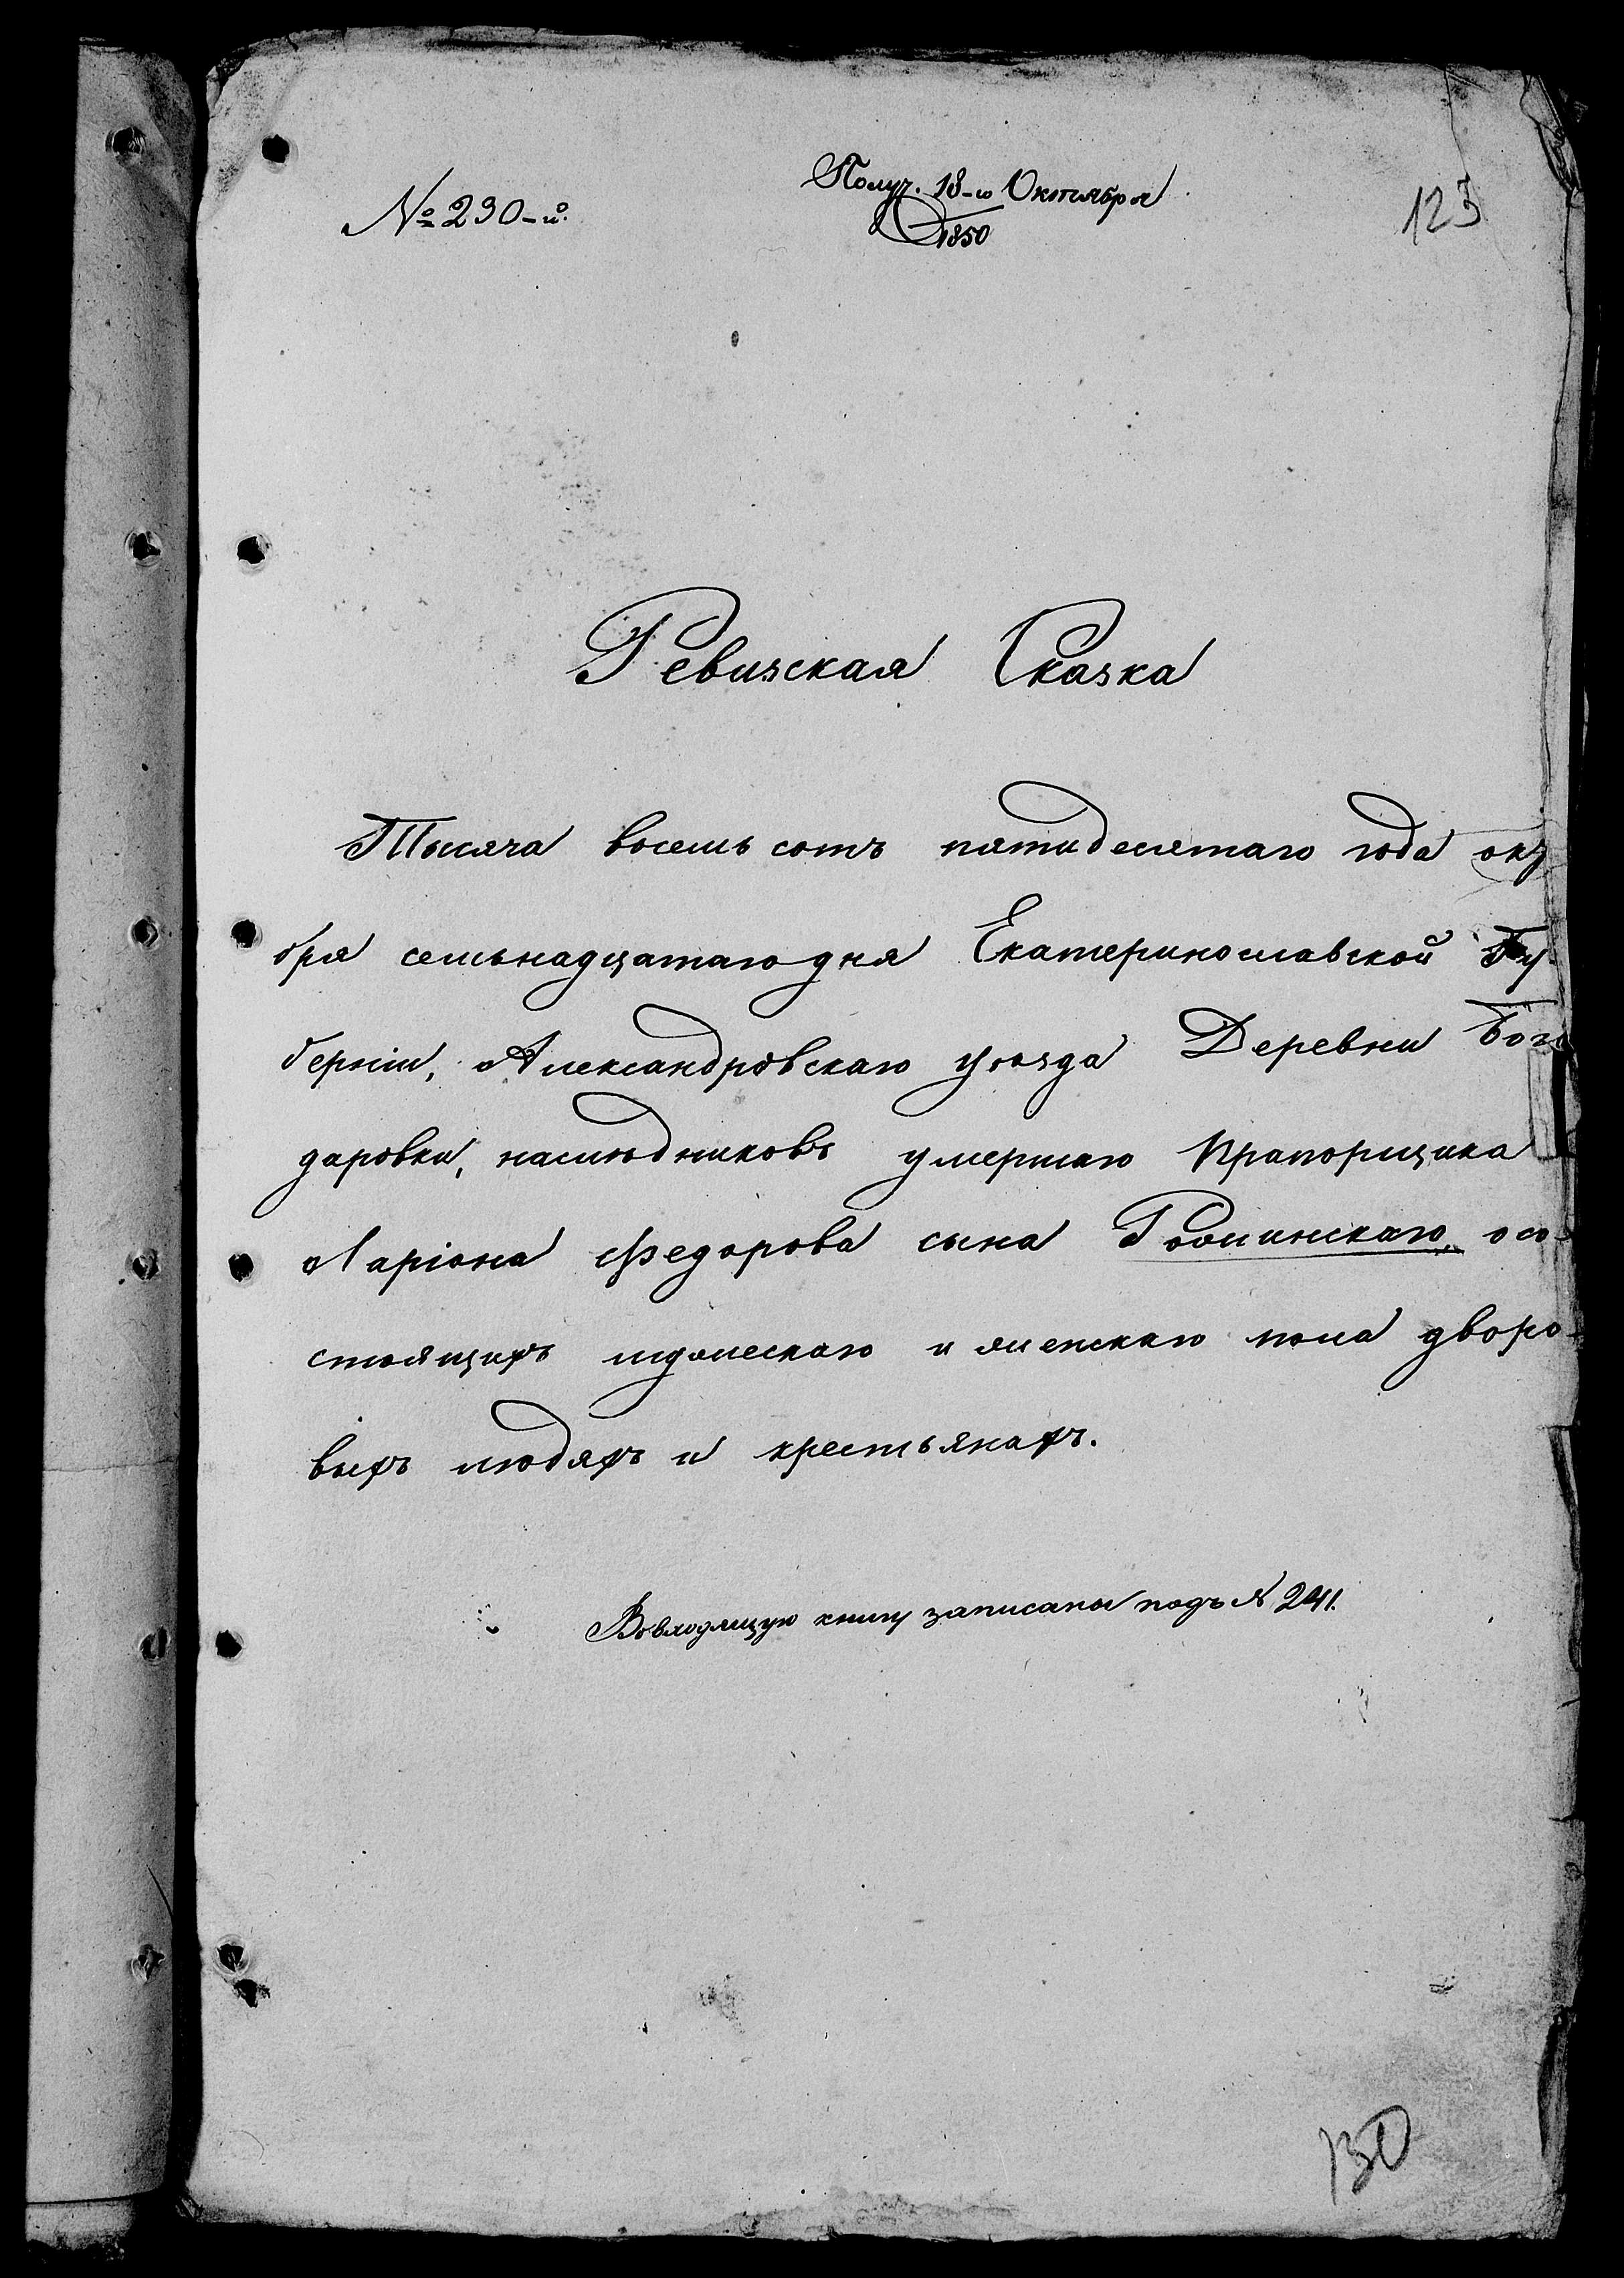 № 230-й.
Получ. 18-го Октября
1850
123
Ревизская Сказка
Тысяча восемь сотъ пятидесятаго года окт
бря семьнадцатаго дня Екатеринославской Гу-
берніи, Александровскаго уѣзда Деревни Бог
даровки, наслѣдниковъ умершаго Прапорщика
Ларіона Федорова сына о со-
стоящихъ мужескаго и женскаго пола дворо-
выхъ людяхъ и крестьянахъ.
Вовходящую книгу записана подъ № 241.
130